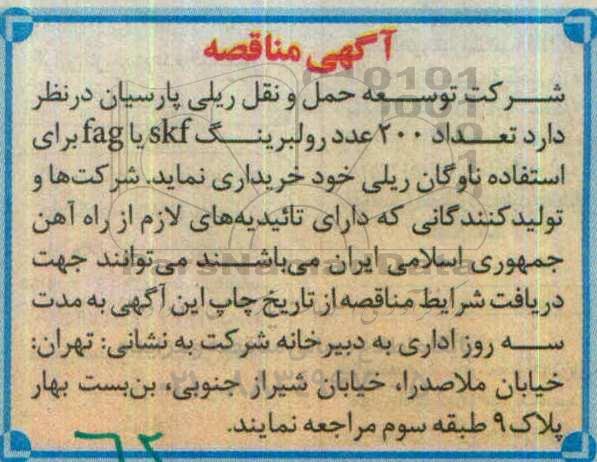 آگهی مناقصه
شرکت توسعه حمل و نقل ریلی پارسیان درنظر
دارد تعداد ۲۰۰ عدد رولبرینگ skf یا fag برای
استفاده ناوگان ریلی خود خریداری نماید. شرکت‌ها و
تولیدکنندگانی که دارای تائیدیه‌های لازم از راه آهن
جمهوری اسلامی ایران می‌باشند می‌توانند جهت
دریافت شرایط مناقصه از تاریخ چاپ این آگهی به مدت
سه روز اداری به دبیرخانه شرکت به نشانی: تهران:
خیابان ملاصدرا، خیابان شیراز جنوبی، بن‌بست بهار
پلاک ۹ طبقه سوم مراجعه نمایند.
۶۲